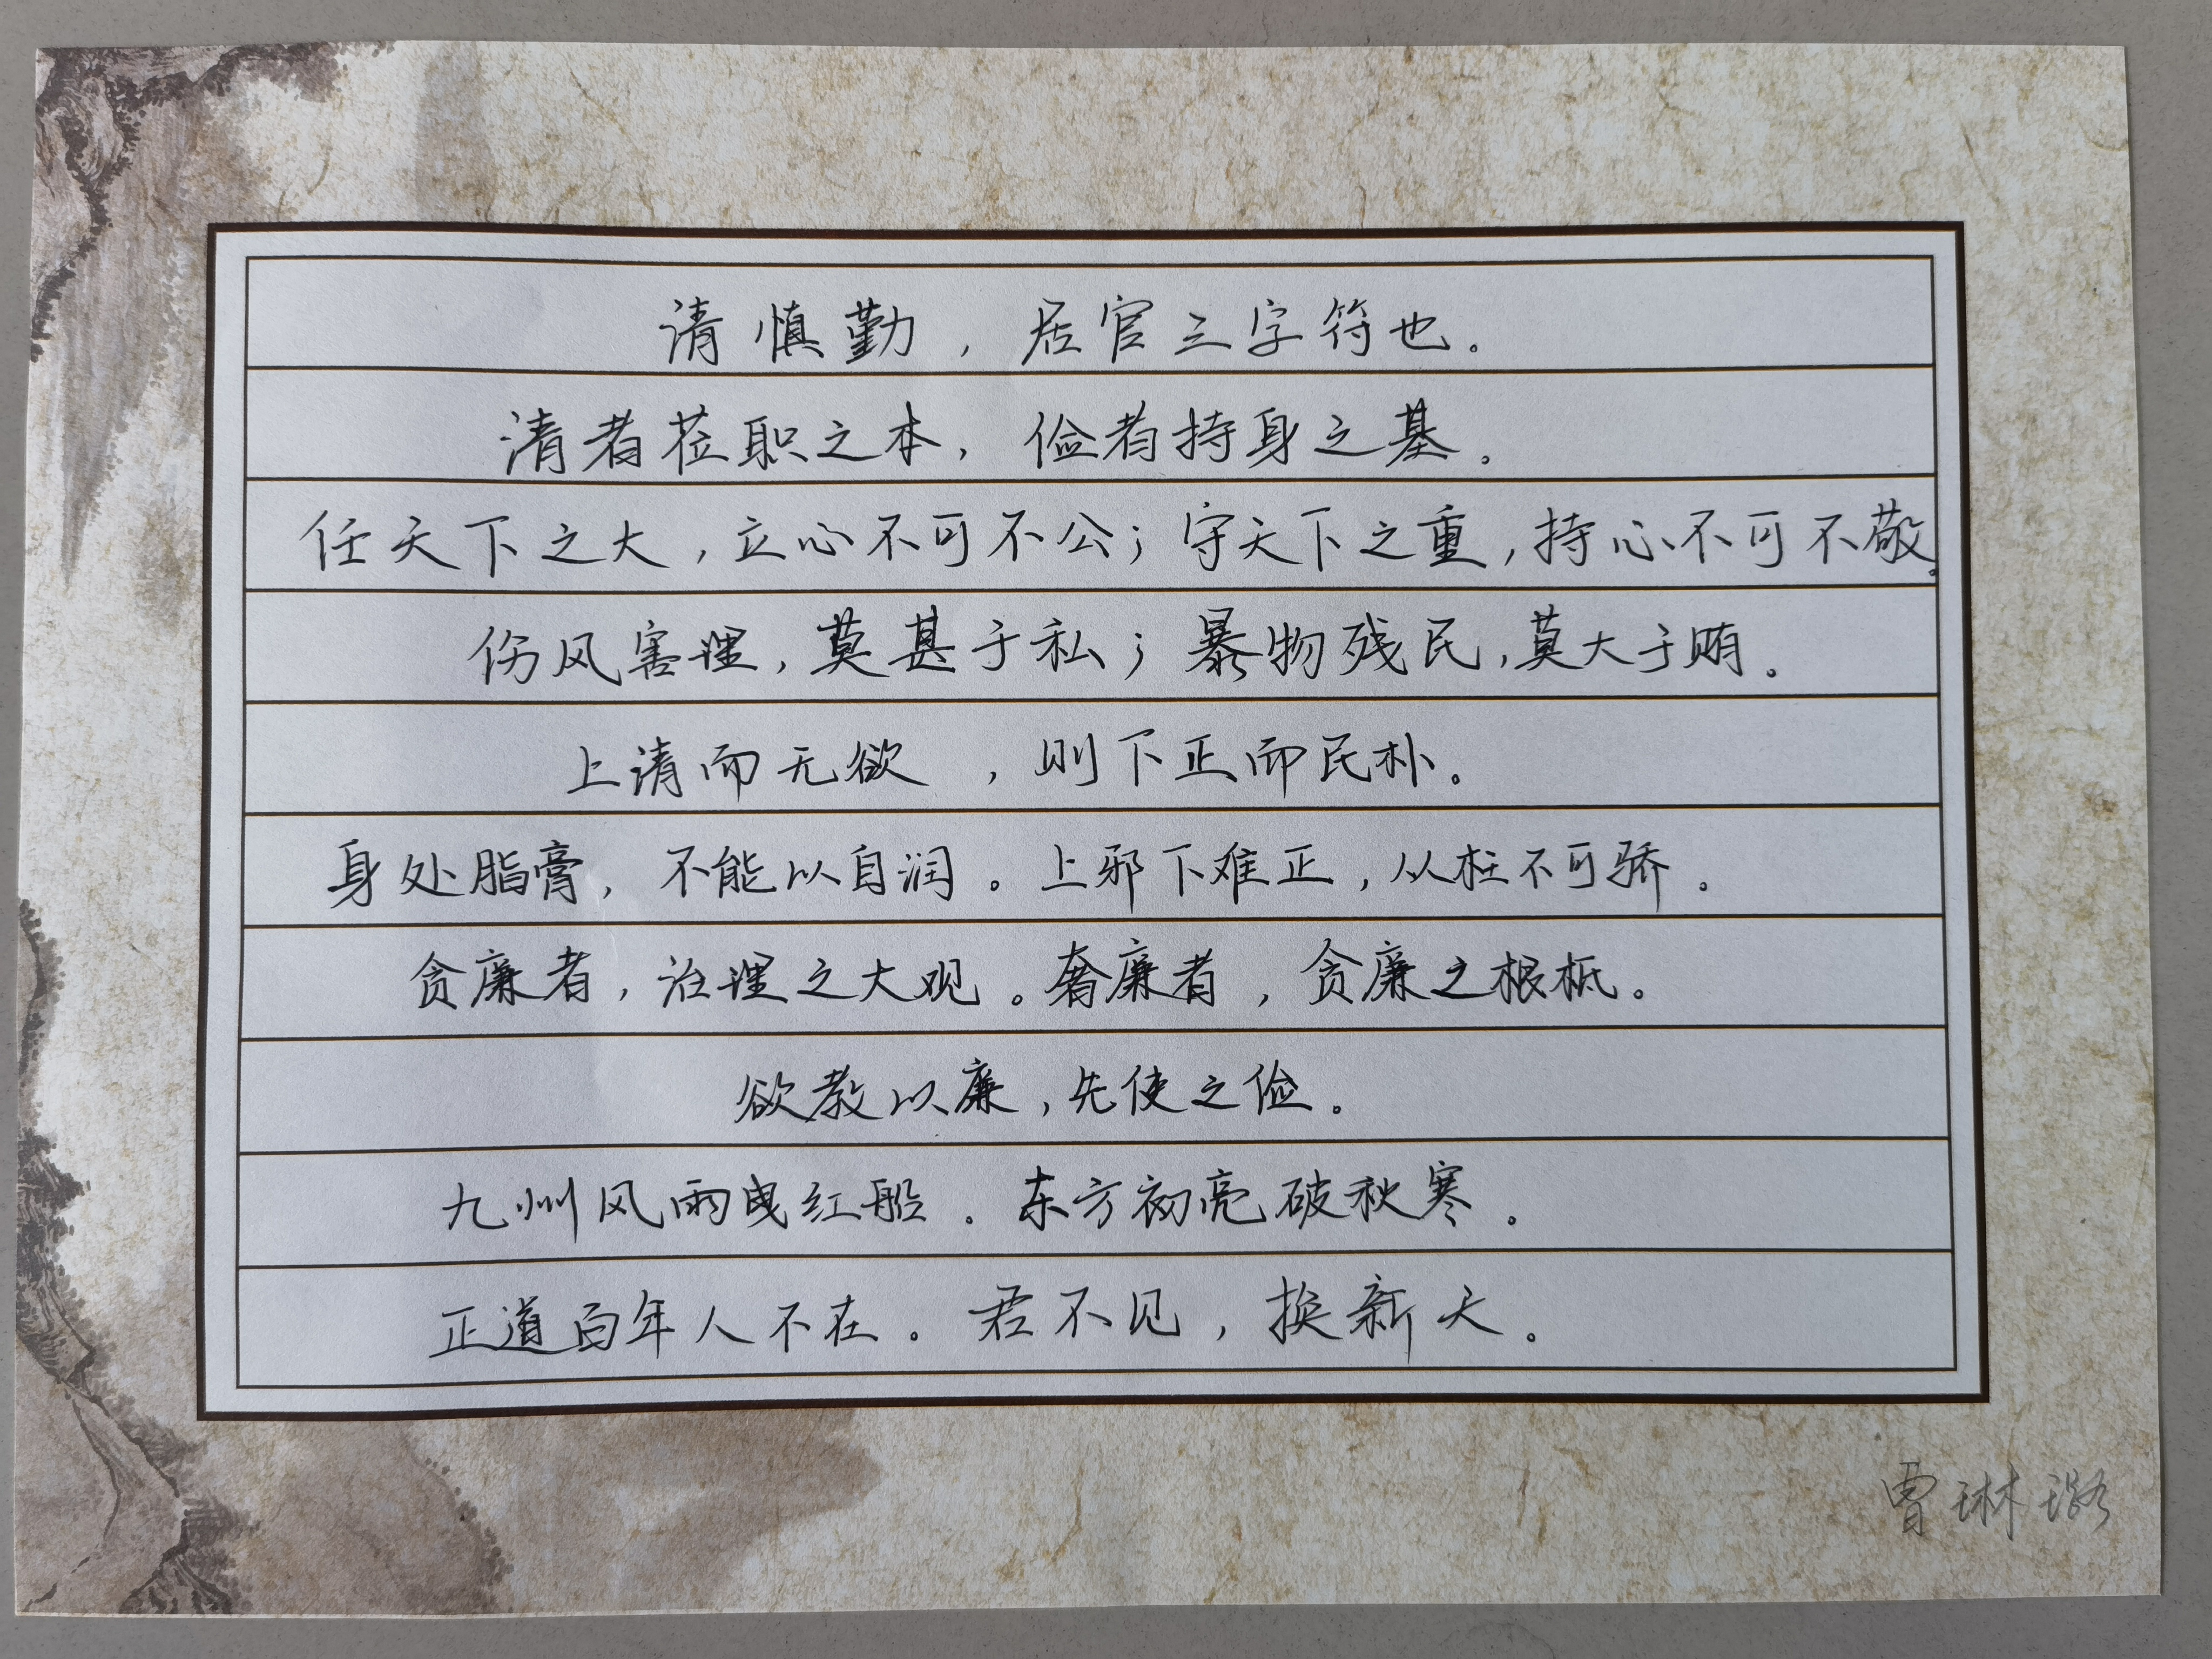 请慎勤，居官三字符也。
清者莅职之本，俭者持身之基。
任天下之大，立心不可不公；守天下之重，持心不可不敬。
伤风害理，莫甚于私；暴物残民，莫大于贿。
上请而无欲，则下正而民朴。
身处脂膏，不能以自润。上邪下难正，从枉不可骄。
贪廉者，治理之大观。奢廉者，贪廉之根柢。
欲教以廉，先使之俭。
九州风雨曳红船。东方初亮破秋寒。
正道百年人不在。君不见，换新天。
曹琳璐